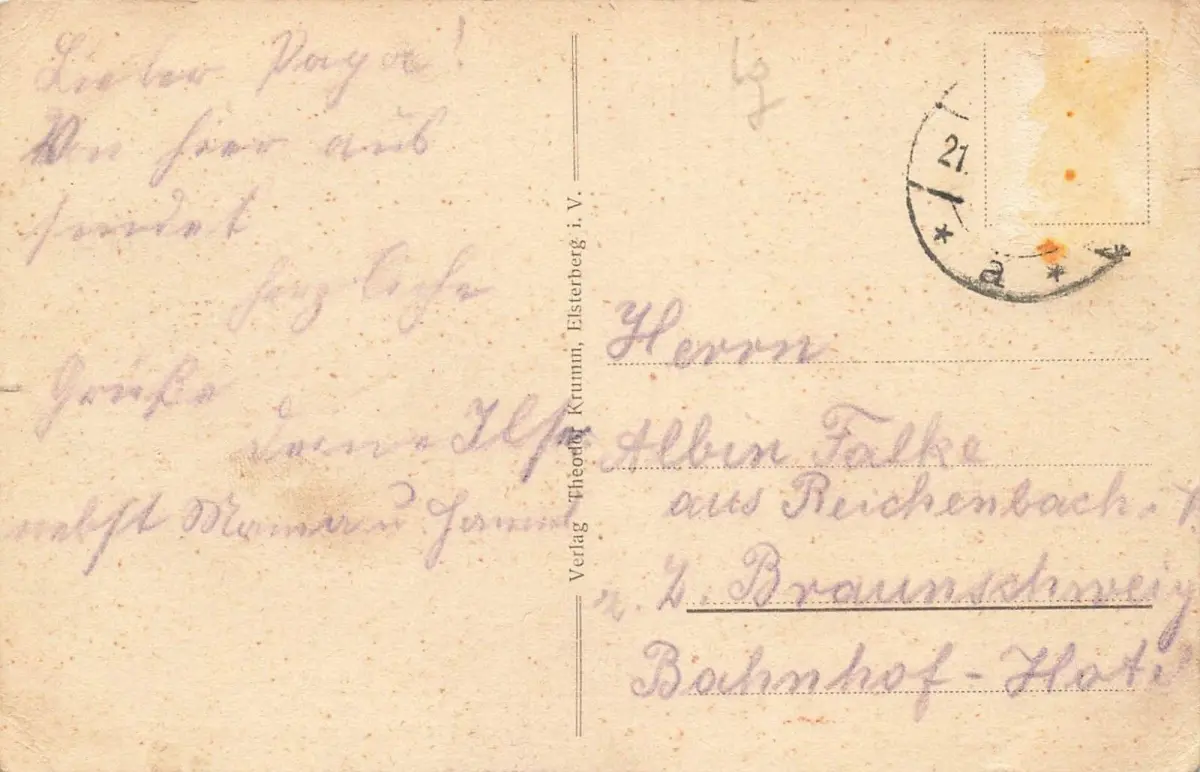 Lieber Papa!
Von hier aus
sendet
herzliche
Grüße
deine Ilse
nebst Mama u
Verlag Theodor Krumm, Elsterberg i. V.
21.
* ä * *
Herrn
Albin Falke
aus Reichenbach. V
z. Z. Braunschweig
Bahnhof-Hotel